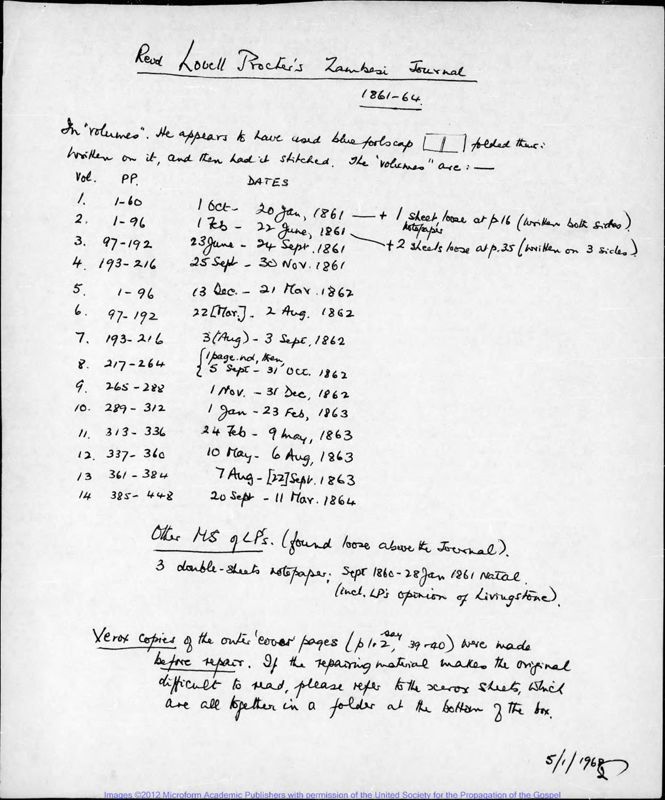 Revd Lovell Procter's Zambesi Journal
1861-64.
In "volumes". He appears to have used blue foolscap folded thus:
Written on it, and then had it stitched. The "volumes" are: —
Vol. PP. DATES
1. 1-60 1 Oct - 20 Jan, 1861 — + 1 sheet loose at p.16 (written both sides)
notepaper
2. 1-96 1 Feb - 22 June, 1861 — + 2 sheets loose at p.35 (written on 3 sides)
3. 97-192 23 June - 24 Sept. 1861
4. 193-216 25 Sept - 30 Nov. 1861
5. 1-96 13 Dec. - 21 Mar. 1862
6. 97-192 22 [Mar.] - 2 Aug. 1862
7. 193-216 3 (Aug) - 3 Sept, 1862
8. 217-264 { 1 page. nd, then,
5 Sept - 31 Oct. 1862
9. 265-288 1 Nov. - 31 Dec, 1862
10. 289-312 1 Jan - 23 Feb, 1863
11. 313-336 24 Feb - 9 May, 1863
12. 337-360 10 May - 6 Aug, 1863
13 361-384 7 Aug - [22] Sept. 1863
14 385-448 20 Sept - 11 Mar. 1864
Other MS of LP's. (found loose above the Journal).
3 double-sheets notepaper; Sept 1860 - 28 Jan 1861 Natal.
(incl. LP's opinion of Livingstone).
Xerox copies of the outer 'cover' pages (p 1+2, say 39-40) were made
before repair. If the repairing material makes the original
difficult to read, please refer to the xerox sheets, which
are all together in a folder at the bottom of the box.
5/1/1968
Images ©2012 Microform Academic Publishers with permission of the United Society for the Propagation of the Gospel